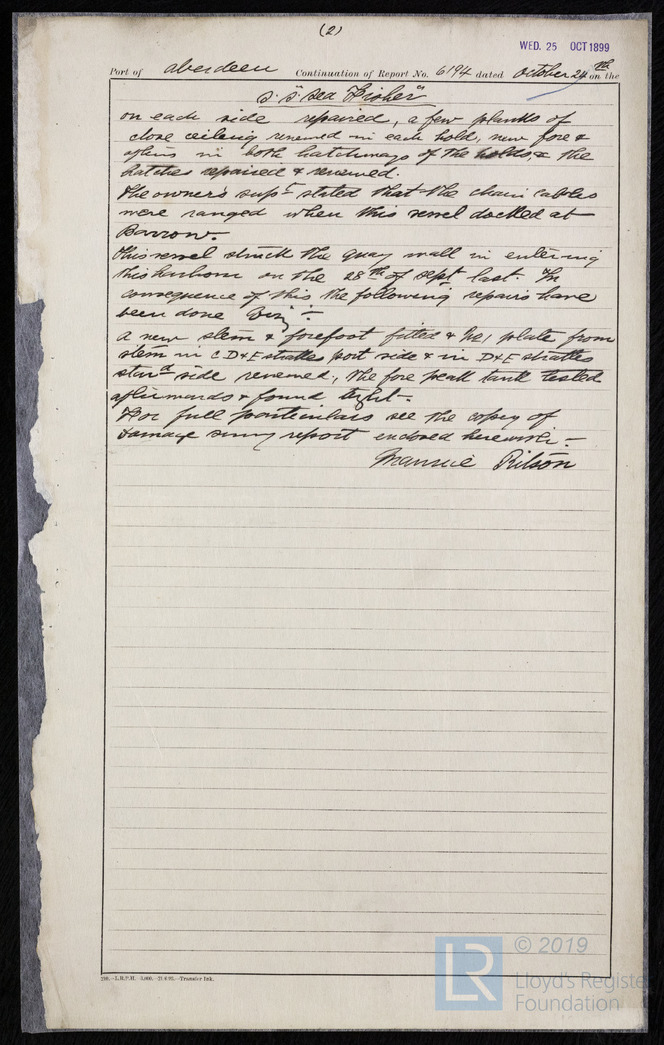 (2)
WED. 25 OCT 1899
Port of Aberdeen Continuation of Report No. 6194 dated October 24th on the
S.S. "Sea Fisher"
on each side repaired, a few planks of
close ceiling renewed in each hold, new fore &
afters in both hatchways of the holds, & the
hatches repaired & renewed.
The owners supt stated that the chain cables
were ranged when this vessel docked at
Barrow.
This vessel struck the quay wall in entering
this harbour on the 28th of Sept last. In
consequence of this the following repairs have
been done viz :-
A new stem & forefoot fitted & No 1 plate from
stem in C D & E strakes port side & in D & E strakes
stard side renewed, the fore peak tank tested
afterwards & found tight.
For full particulars see the copy of
Damage survey report enclosed herewith -
Ritson
210.-L.R.P.H.
Transfer Ink.
LR © 2019
Lloyd's Registe
Foundation